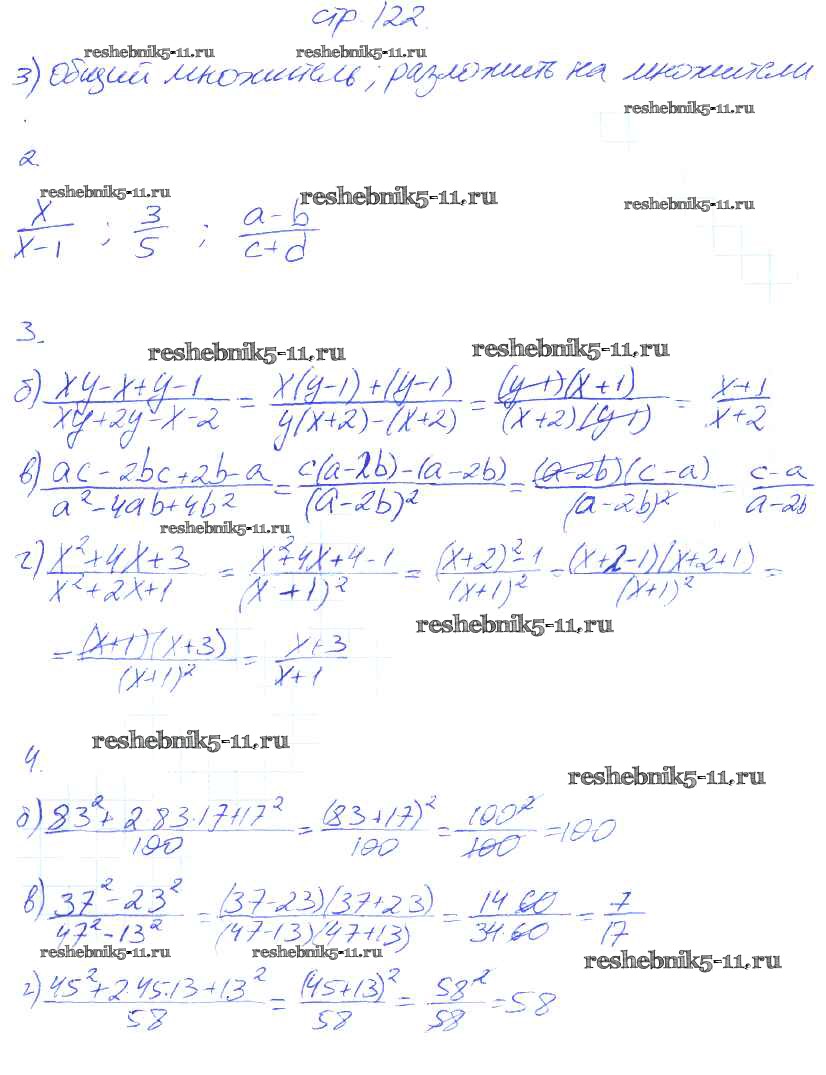 стр 122.
reshebnik5-11.ru reshebnik5-11.ru
3) общий множитель; разложить на множители
reshebnik5-11.ru
2.
reshebnik5-11.ru reshebnik5-11.ru reshebnik5-11.ru
x/(x-1) ; 3/5 ; (a-b)/(c+d)
3.
reshebnik5-11.ru reshebnik5-11.ru
б) (xy-x+y-1)/(xy+2y-x-2) = (x(y-1)+(y-1))/(y(x+2)-(x+2)) = ((y-1)(x+1))/((x+2)(y-1)) = (x+1)/(x+2)
в) (ac-2bc+2b-a)/(a²-4ab+4b²) = (c(a-2b)-(a-2b))/((a-2b)²) = ((a-2b)(c-a))/((a-2b)²) = (c-a)/(a-2b)
reshebnik5-11.ru
г) (x²+4x+3)/(x²+2x+1) = (x²+4x+4-1)/((x+1)²) = ((x+2)²-1)/((x+1)²) = ((x+2-1)(x+2+1))/((x+1)²) =
reshebnik5-11.ru
= ((x+1)(x+3))/((x+1)²) = (x+3)/(x+1)
reshebnik5-11.ru
4.
reshebnik5-11.ru
б) (83²+2 83·17+17²)/100 = (83+17)²/100 = 100²/100 = 100
в) (37²-23²)/(47²-13²) = ((37-23)(37+23))/((47-13)(47+13)) = (14·60)/(34·60) = 7/17
reshebnik5-11.ru reshebnik5-11.ru reshebnik5-11.ru
г) (45²+2·45·13+13²)/58 = (45+13)²/58 = 58²/58 = 58